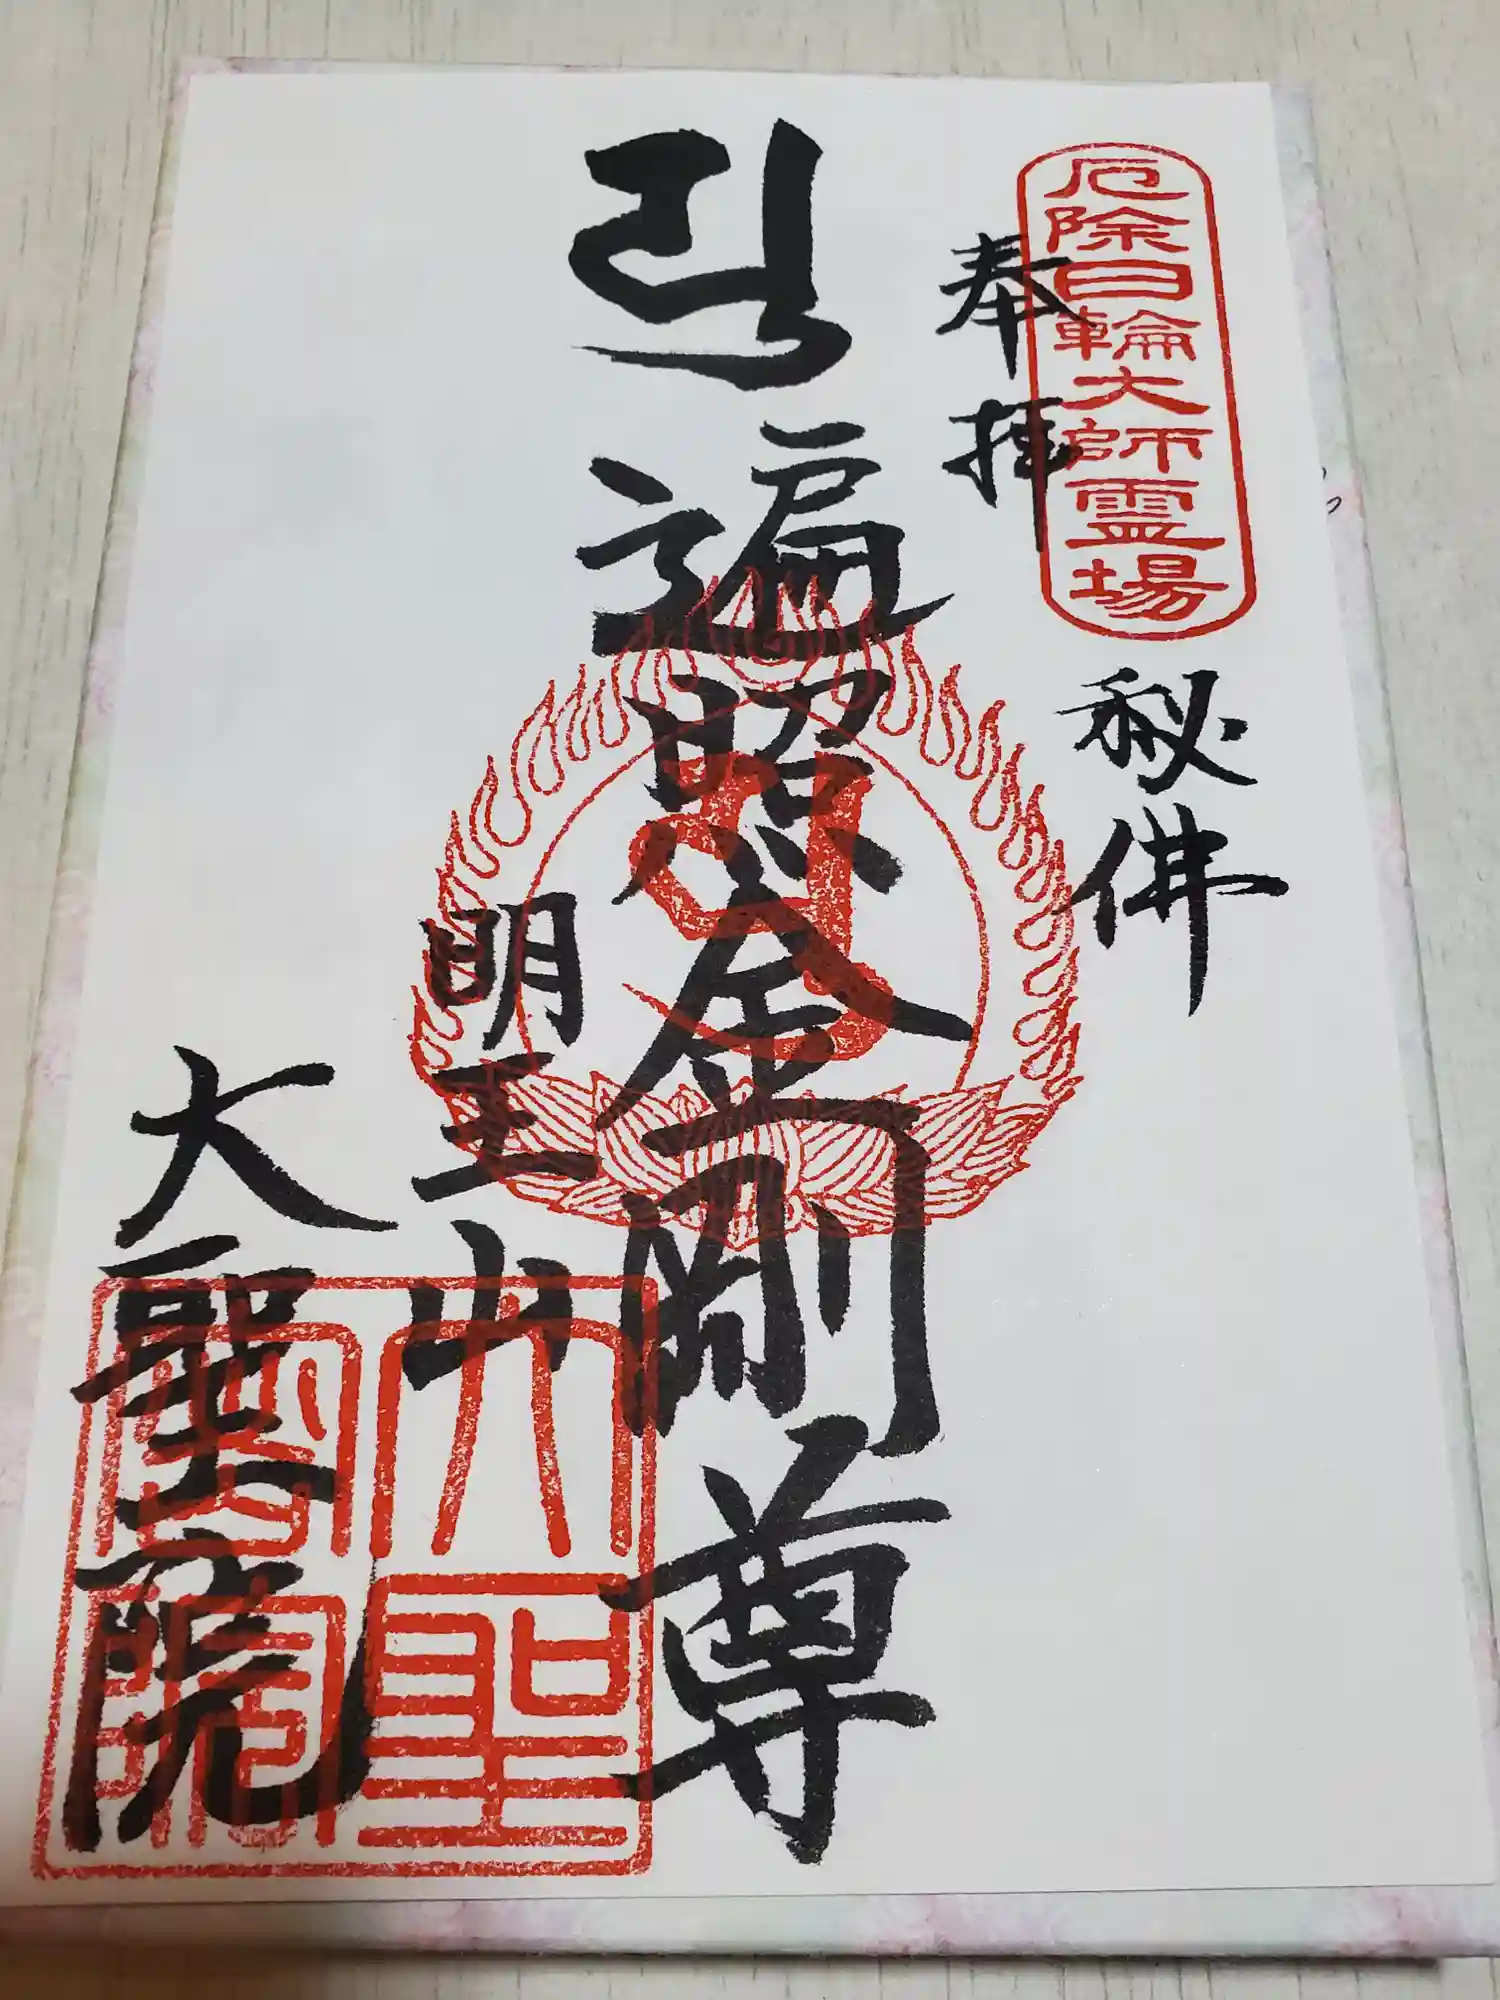 厄除日輪大師霊場
奉拝
秘佛
遍照金剛尊
明王山
大聖院
大聖密寺院